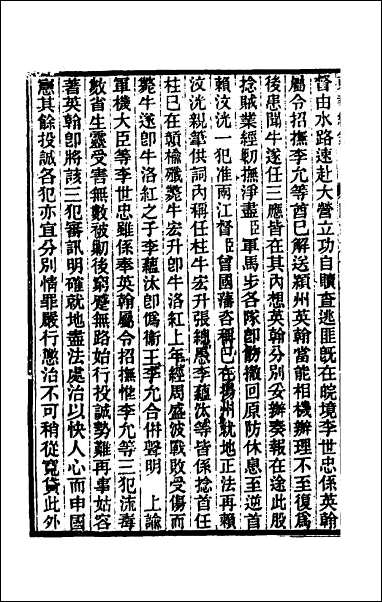 督由水路速赴大營立功自贖查逃匪既在皖境李世忠係英翰
屬令招撫李允等酋已解送潁州英翰當能相機辦理不至復爲
後患聞牛遂任三應皆在其內想英翰分別妥辦奏報在途此股
捻賊業經勦撫淨盡臣軍馬步各隊卽飭撤回原防休息至逆首
賴汶洸一犯准兩江督臣曾國藩咨稱已在揚州就地正法再賴
汶洸親筆供詞內稱任柱牛宏升張總愚李蘊汰等皆係捻首任
柱已在贛榆殲斃牛宏升卽牛洛紅上年經周盛波戰敗受傷而
斃牛遂卽牛洛紅之子李蘊汰卽僞衞王李允合併聲明 上諭
軍機大臣等李世忠雖係奉英翰屬令招撫惟李允等三犯流毒
數省生靈受害無數被勦後窮蹙無路始行投誠勢難再事姑容
著英翰卽將該三犯審訊明確就地盡法處治以快人心而申國
憲其餘投誠各犯亦宜分別情罪嚴行懲治不可稍從寬貸此外